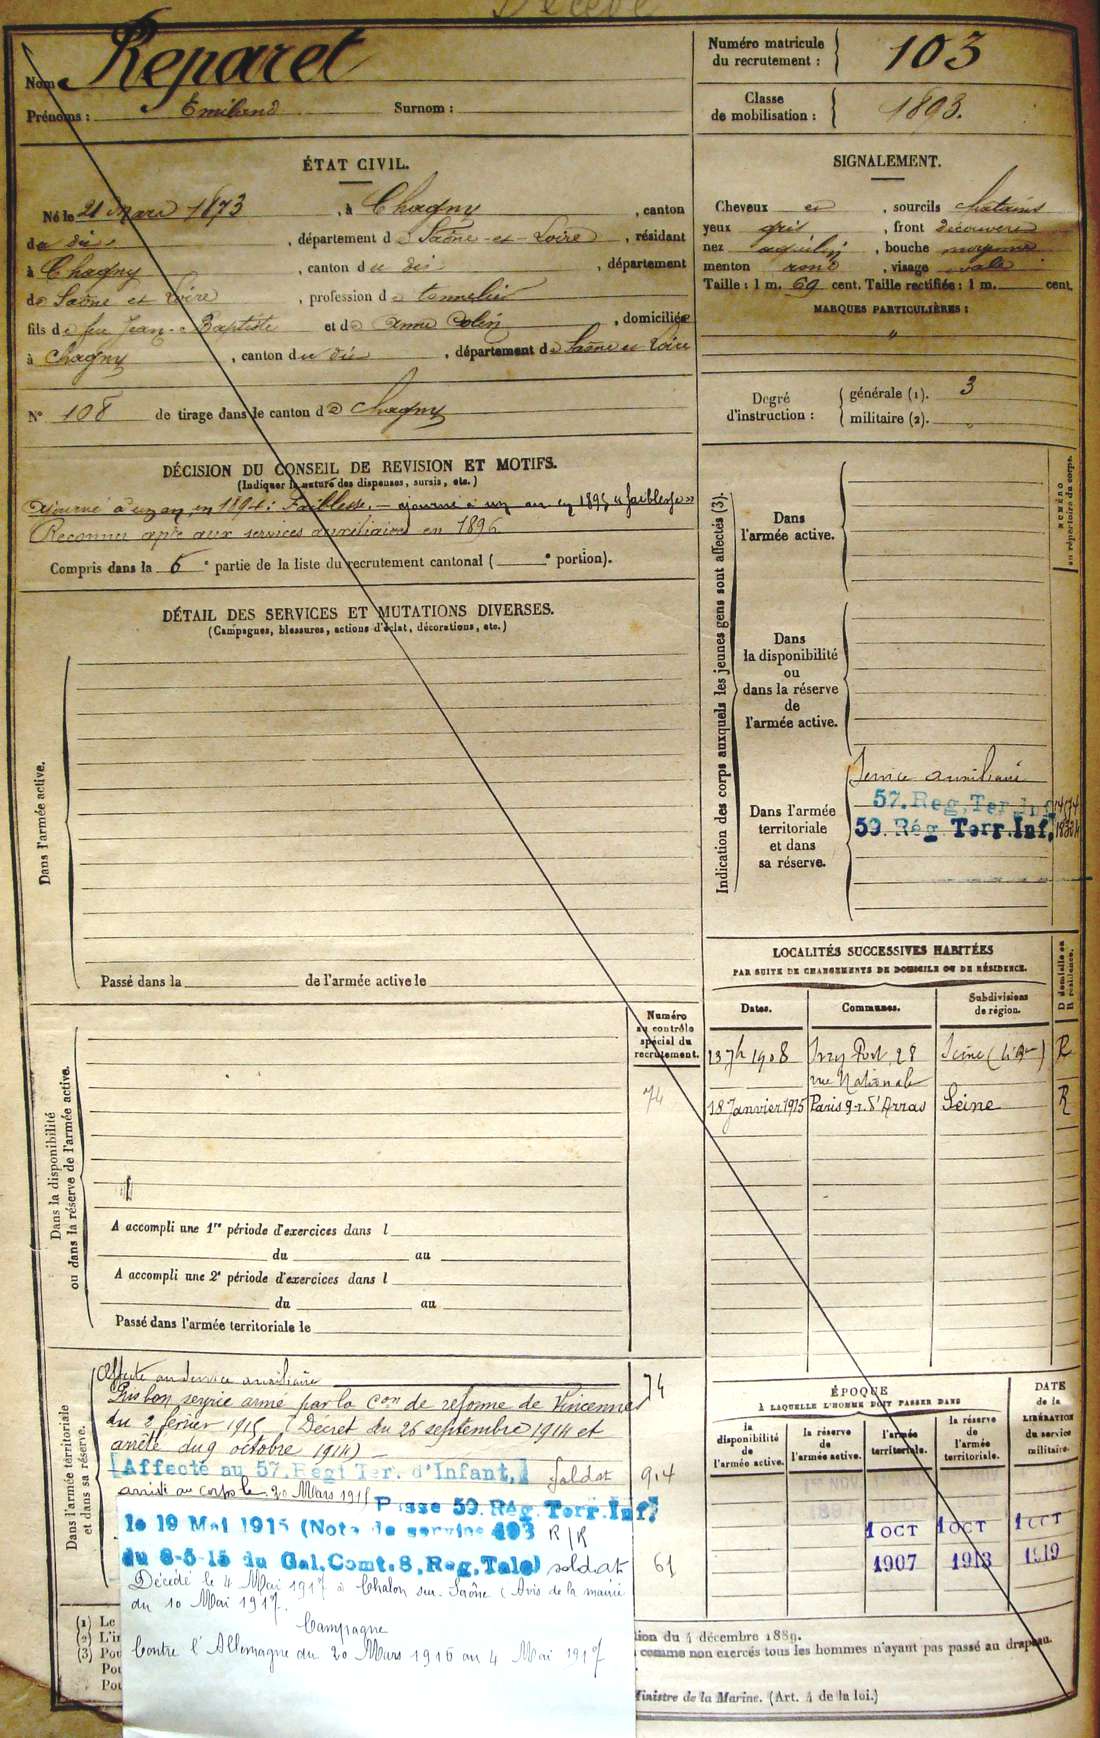 Décédé
Nom Reparet
Prénoms : Emiland Surnom :
Numéro matricule du recrutement : 103
Classe de mobilisation : 1893.
ÉTAT CIVIL.
Né le 21 Mars 1873, à Chagny, canton
du dit, département de Saône-et-Loire, résidant
à Chagny, canton du dit, département
de Saône et Loire, profession de tonnelier
fils de feu Jean-Baptiste et de Anne Colin, domiciliée
à Chagny, canton du dit, département de Saône et Loire
N° 108 de tirage dans le canton de Chagny
SIGNALEMENT.
Cheveux et, sourcils châtains
yeux gris, front découvert
nez aquilin, bouche moyenne
menton rond, visage ovale
Taille : 1 m. 69 cent. Taille rectifiée : 1 m. cent.
MARQUES PARTICULIÈRES :
"
Degré d'instruction :
générale (1). 3
militaire (2).
DÉCISION DU CONSEIL DE REVISION ET MOTIFS.
(Indiquer la nature des dispenses, sursis, etc.)
Ajourné à un an en 1894 : Faiblesse. — ajourné à un an en 1895 "faiblesse"
Reconnu apte aux services auxiliaires en 1896
Compris dans la 6e partie de la liste du recrutement cantonal ( e portion).
DÉTAIL DES SERVICES ET MUTATIONS DIVERSES.
(Campagnes, blessures, actions d'éclat, décorations, etc.)
Dans l'armée active.
Passé dans la de l'armée active le
Indication des corps auxquels les jeunes gens sont affectés (3).
NUMÉRO au répertoire du corps.
Dans
l'armée active.
Dans
la disponibilité
ou
dans la réserve
de
l'armée active.
Dans l'armée
territoriale
et dans
sa réserve.
Service auxiliaire
57. Reg. Ter. Inf.
59. Rég. Terr. Inf.
LOCALITÉS SUCCESSIVES HABITÉES
PAR SUITE DE CHANGEMENTS DE DOMICILE OU DE RÉSIDENCE.
D domicile ou R résidence.
Dates. Communes. Subdivisions de région.
13 7b 1908 Ivry Port, 28 rue Nationale Seine R
18 Janvier 1915 Paris 9 r. d'Arras Seine R
Dans la disponibilité
ou dans la réserve de l'armée active.
Numéro
au contrôle
spécial du
recrutement.
74
A accompli une 1re période d'exercices dans l
du au
A accompli une 2e période d'exercices dans l
du au
Passé dans l'armée territoriale le
Dans l'armée territoriale
et dans sa réserve.
Affecté au Service auxiliaire 74
Pris bon service armé par la Con de réforme de Vincennes
du 2 février 1915 (Décret du 26 septembre 1914 et
arrêté du 9 octobre 1914) —
Affecté au 57. Regt Ter. d'Infant. Soldat 914
arrivé au corps le 20 Mars 1915
Passe 59. Rég. Terr. Inf.
le 19 Mai 1915 (Note de service 493 R/R
du 8-5-15 du Gal. Comt. 8. Reg. Tale) soldat 61
Décédé le 4 Mai 1917 à Chalon sur Saône (Avis de la mairie
du 10 Mai 1917.
Campagne
Contre l'Allemagne du 20 Mars 1915 au 4 Mai 1917
ÉPOQUE
À LAQUELLE L'HOMME DOIT PASSER DANS
la disponibilité de l'armée active.
la réserve de l'armée active.
l'armée territoriale.
la réserve de l'armée territoriale.
DATE de la LIBÉRATION du service militaire.
1er NOV
1897
1 OCT 1 OCT 1 OCT
1907 1913 1919
(1) Le
(2) L'in
(3) Pou
Pou
Pou
tion du 4 décembre 1889.
comme non exercés tous les hommes n'ayant pas passé au drapeau.
Ministre de la Marine. (Art. 4 de la loi.)